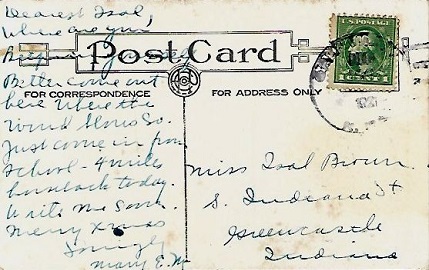 Dearest Isol,
Where are you
Post Card
Better come out
FOR CORRESPONDENCE
FOR ADDRESS ONLY
here where the
Wind blows so.
Just come in from
School - 4 miles
horseback today.
Write me soon.
Merry Xmas
Lovingly
Mary E. M
U.S. POSTAGE
1 CENT 1
Miss Isol Brown
S. Indiana St
Greencastle
Indiana